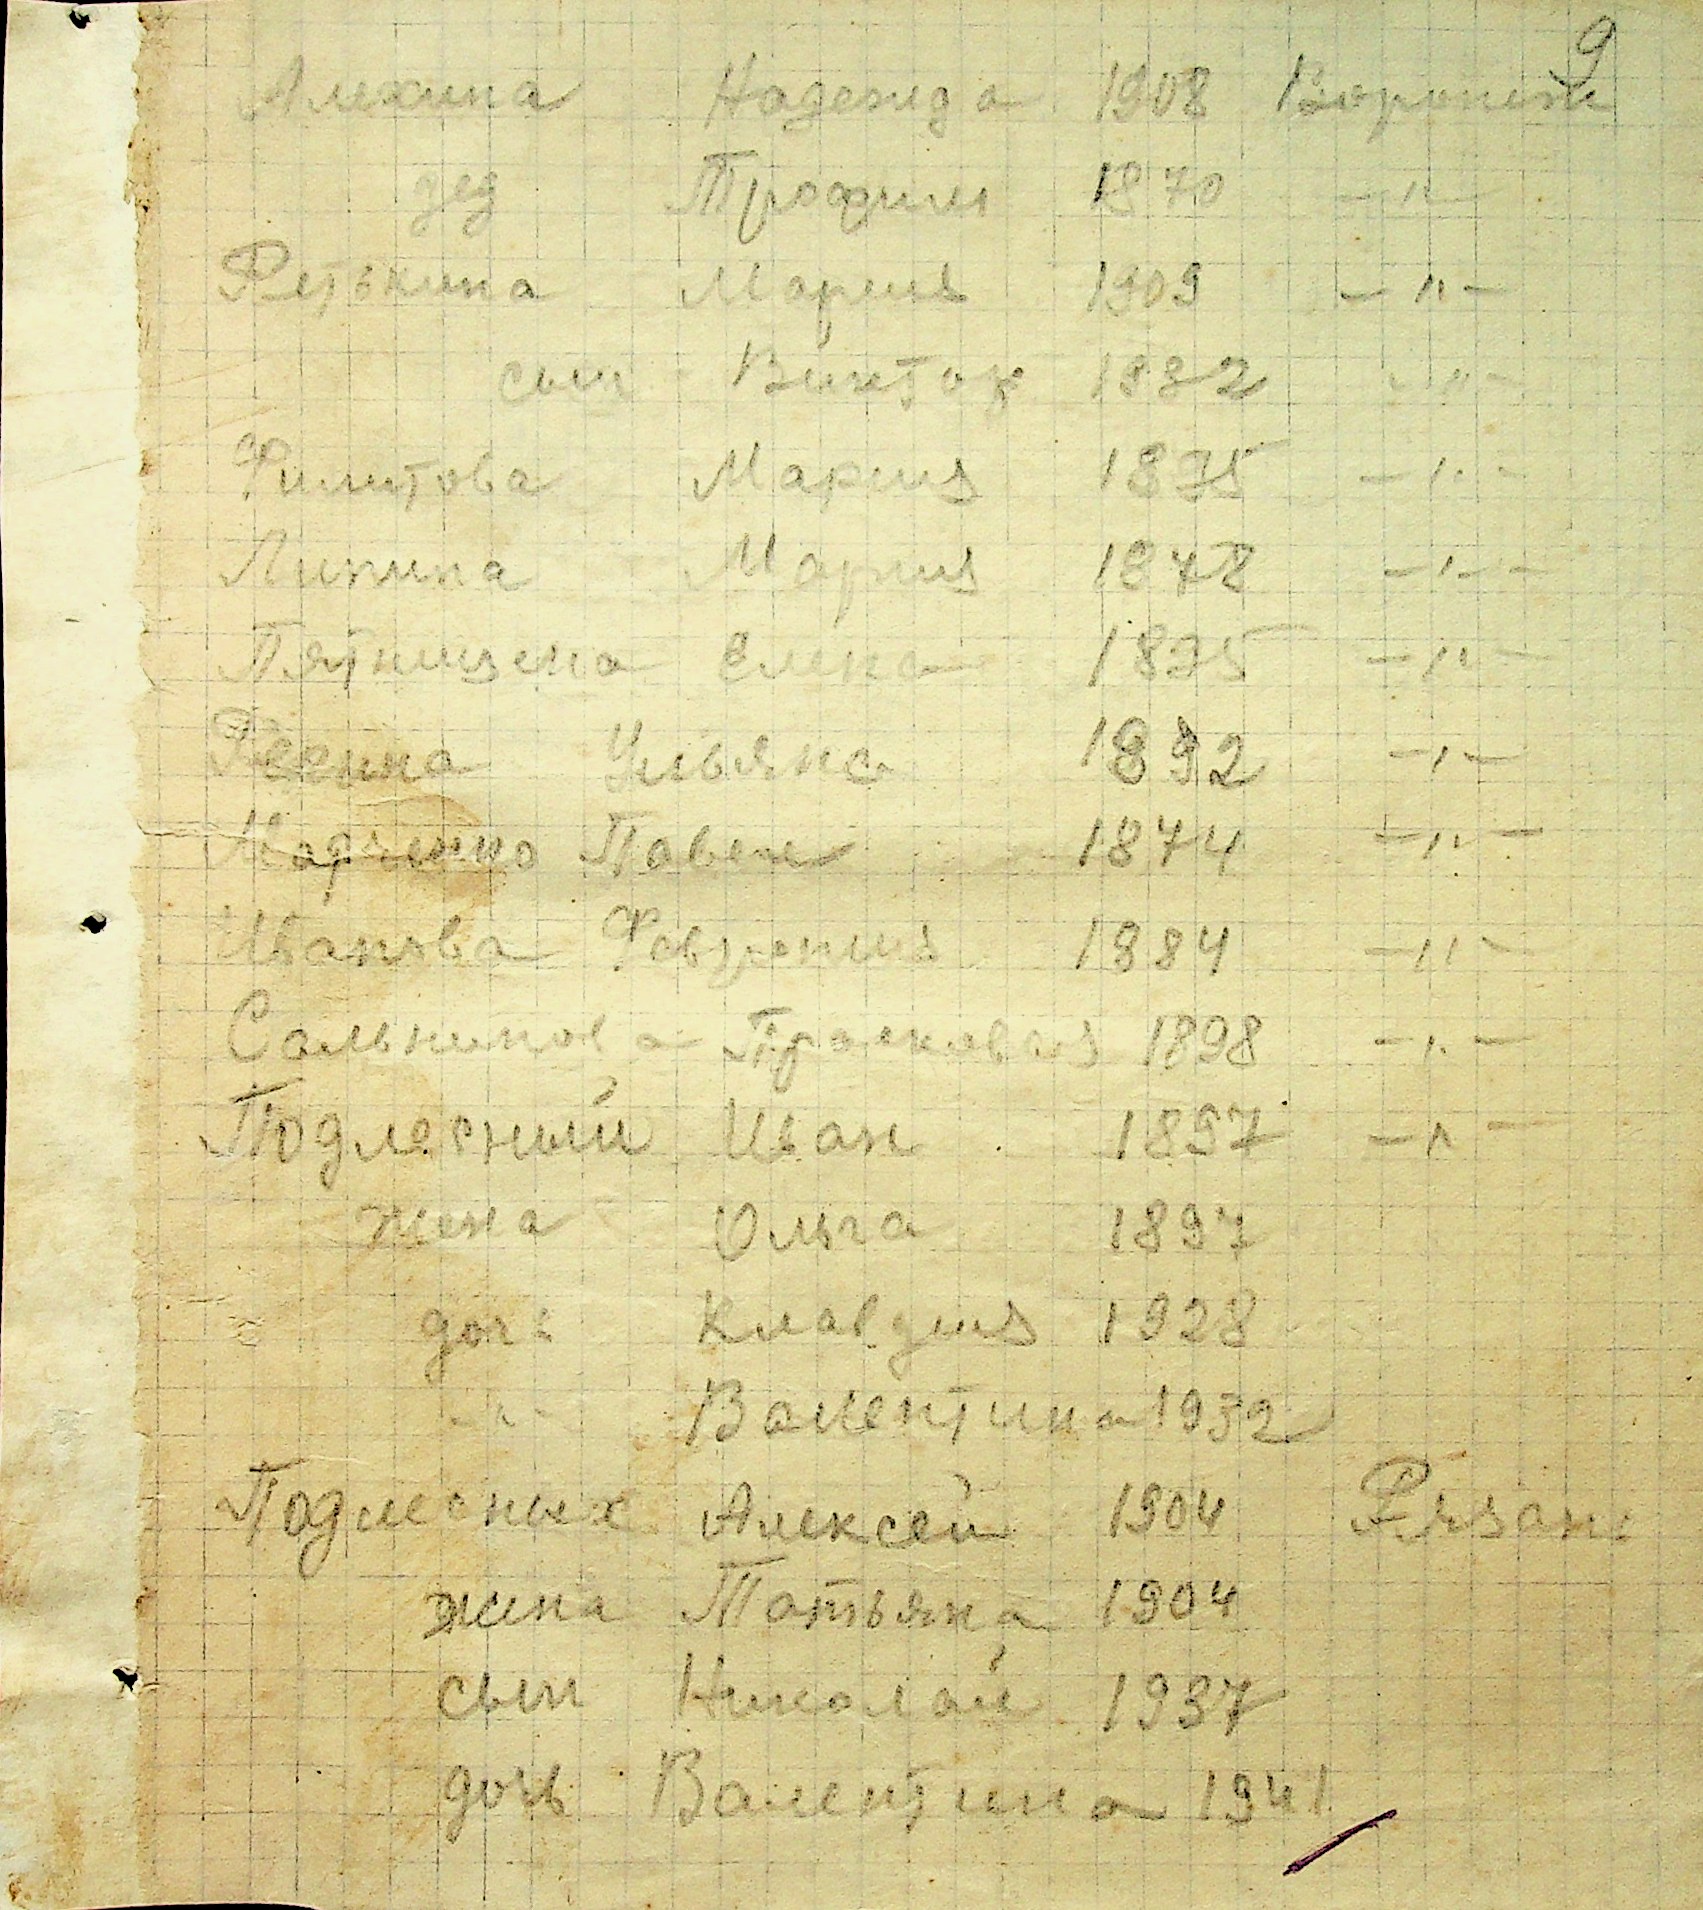 9
Алехина Надежда 1908 Воронеж
дед Трофим 1870 — " —
Ретькина Мария 1909 — " —
сын Виктор 1932 — " —
Филитова Мария 1875 — " —
Липина Мария 1878 — " —
Пятницена Елена 1895 — " —
Ульяна 1892 — " —
Марченко Павел 1874 — " —
Иванова Февфрония 1884 — " —
Сальникова Прасковья 1898 — " —
Подлесный Иван 1897 — " —
жена Ольга 1897
дочь Клавдия 1928
— " — Валентина 1932
Подлесных Алексей 1904 Рязань
жена Татьяна 1904
сын Николай 1937
дочь Валентина 1941